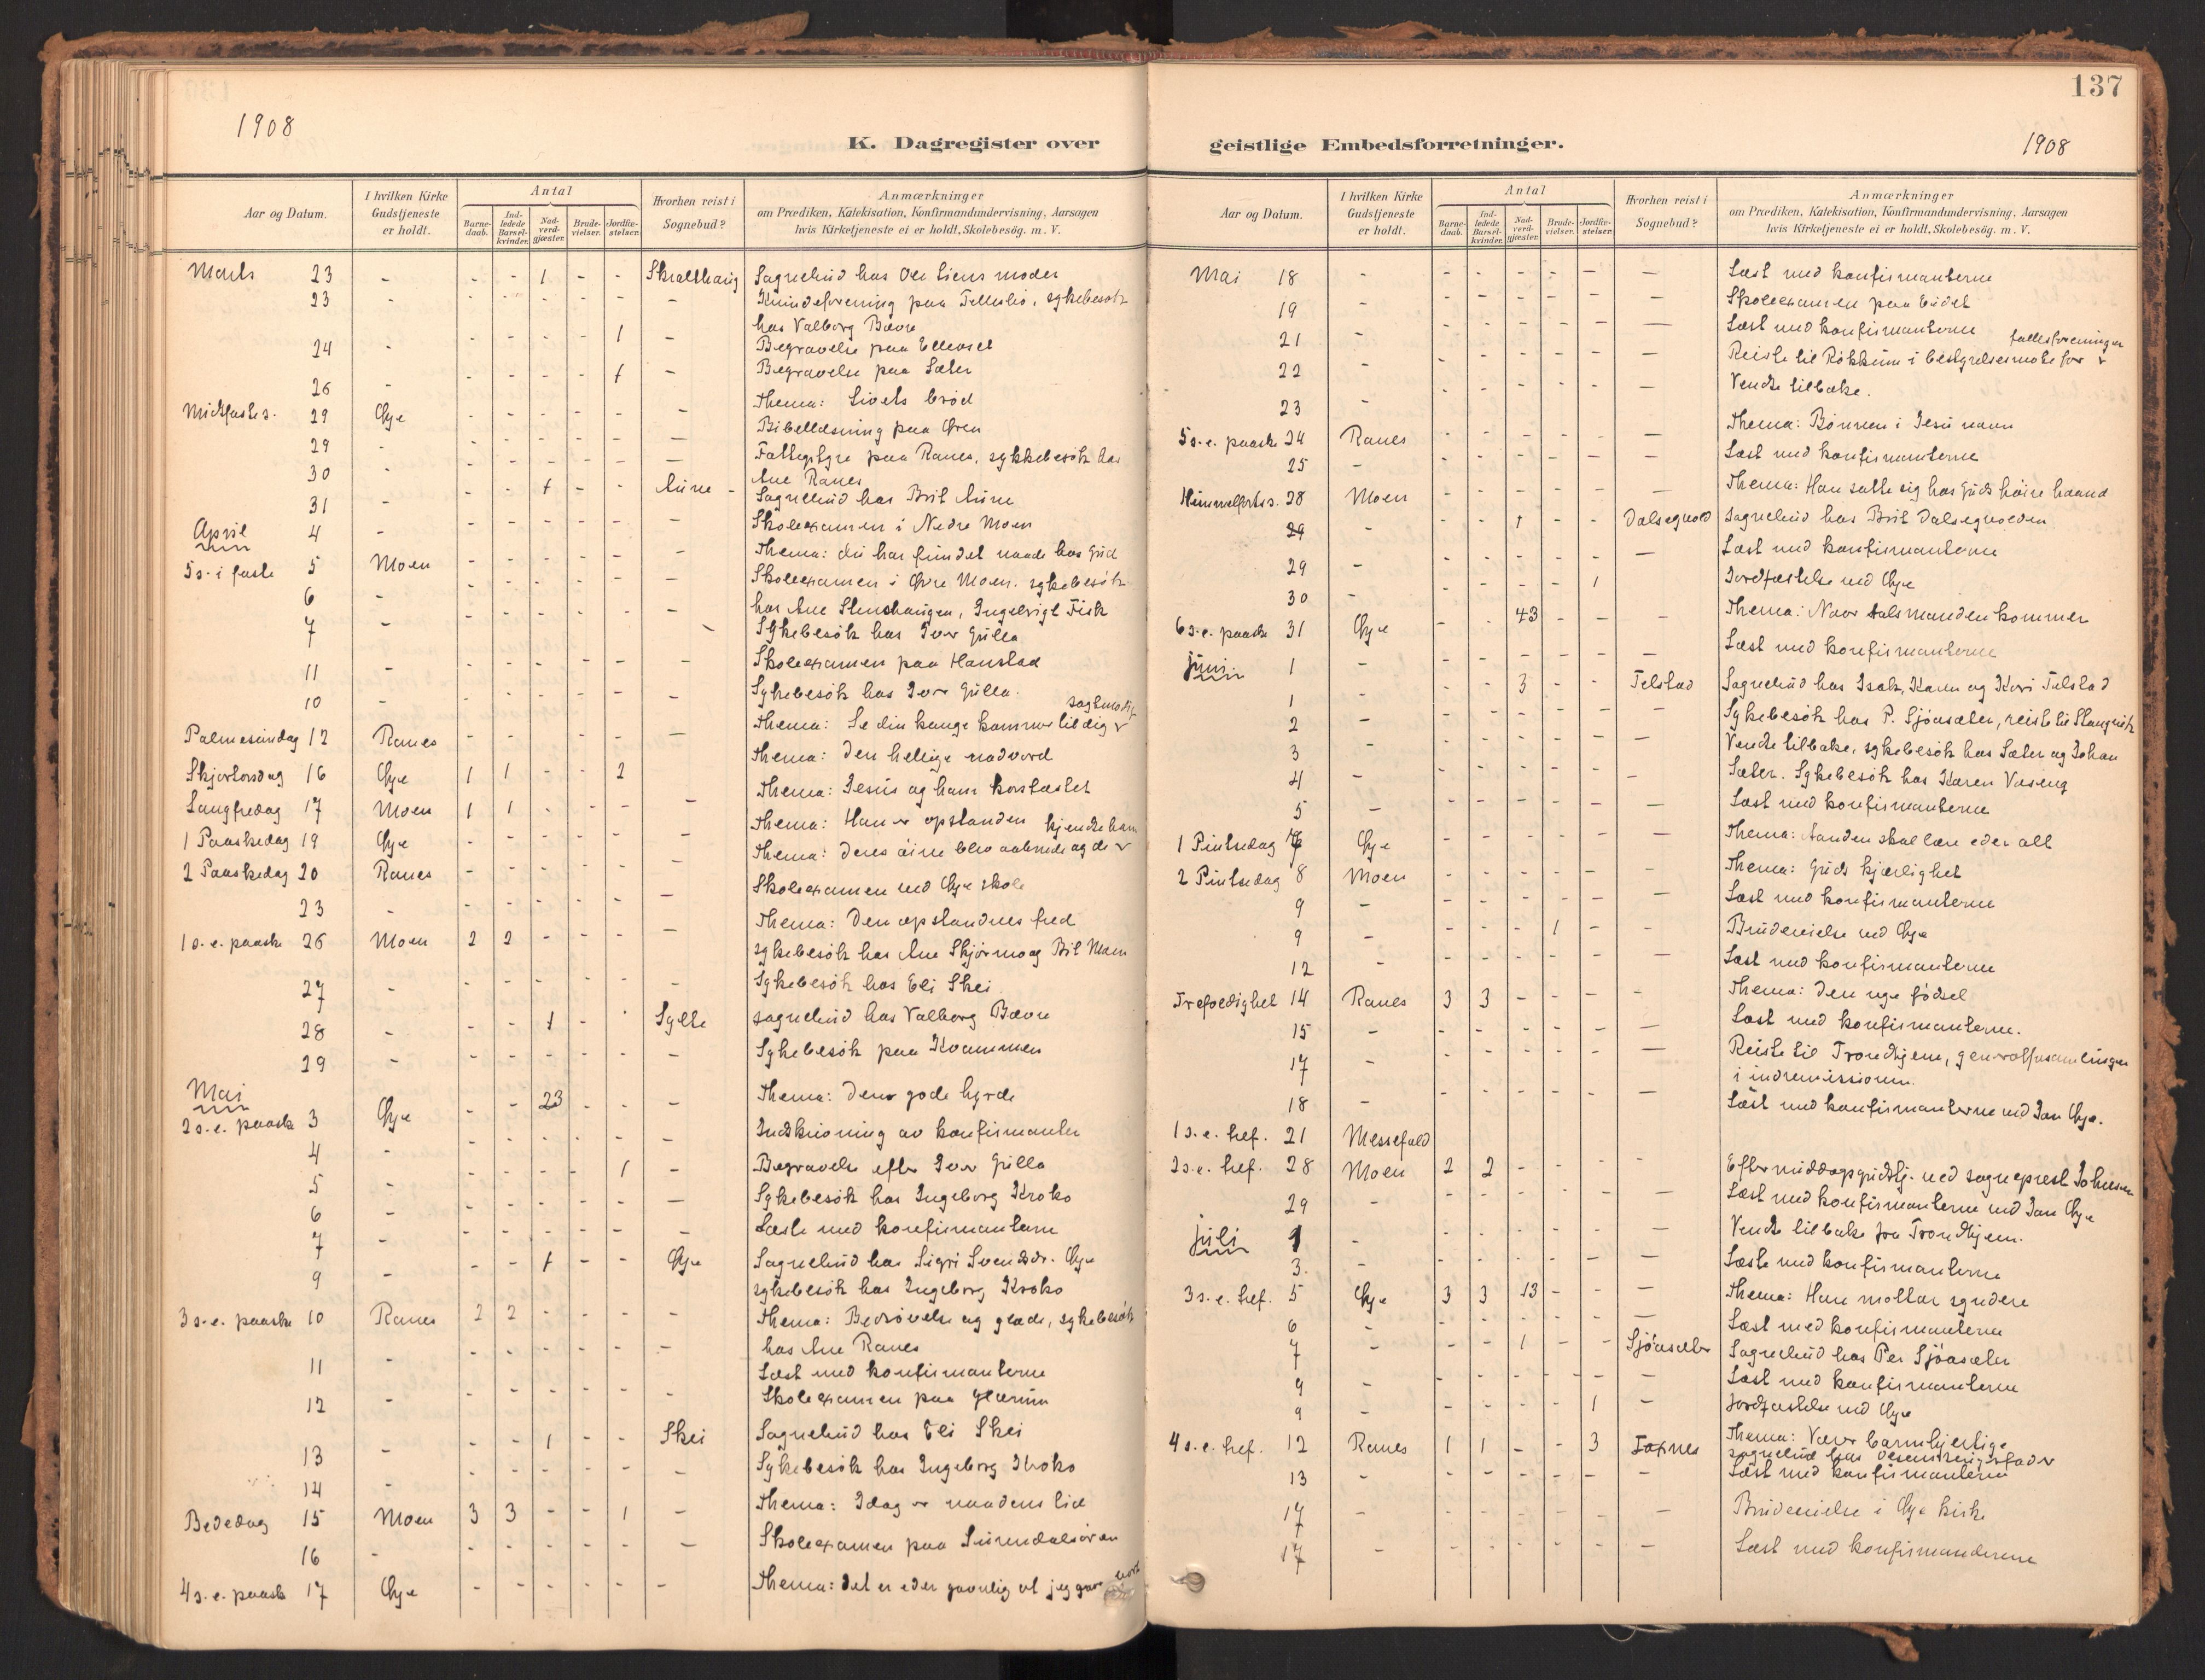 1908
K. Dagregister over
Aar og Datum.
I hvilken Kirke Gudstjeneste er holdt.
Antal
Barnedaab.
Indledede Barselkvinder.
Nadverdgjæster.
Brudevielser.
Jordfæstelser.
Hvorhen reist i Sognebud?
Anmærkninger
om Prædiken, Katekisation, Konfirmandundervisning, Aarsagen
hvis Kirketjeneste ei er holdt, Skolebesög. m. V.
Marts 23 - - - 1 - - Sognebud hos Ole Liens moder
23 - - - - - - - Kvindeforening paa Telleslia, sykebesøk
hos Valborg Bævre
24 - - - - - 1 - Begravelse paa
26 - - - - - 1 - Begravelse paa Sæter
Midtfastes. 29 Øye - - - - - - Thema: Livets brød
29 - - - - - - - Bibellæsning paa Øren
30 - - - - - - - Fattigstyre paa Ranes, sykkebesøk hos
Ane Ranes
31 - - - 1 - - Aune - Sognebud hos Brit Aune
April 4 - - - - - - - Skoleexamen i Nedre Moen
5 s. i faste 5 Moen - - - - - - Thema: du har fundet naade hos Gud
6 - - - - - - - Skoleexamen i Øvre Moen. sykebesøk
hos Ane Stenshaugen, Ingebrigt Fisk
7 - - - - - - - Sykebesøk hos Iver Gulla
11 - - - - - - - Skoleexamen paa Hanstad
10 - - - - - - - Sykebesøk hos Iver Gulla.
Palmesundag 12 Ranes - - - - - - Thema: Se din konge kommer til dig sagtmodig
Skjærtorsdag 16 Øye 1 1 - - 2 Thema: Den hellige nadverd
Langfredag 17 Moen 1 1 - - - - Thema: Jesus og hans korsfæstet
1 Paaskedag 19 Øye - - - - - - Thema: Han er opstanden
2 Paaskedag 20 Ranes - - - - - Thema: Deres øine blev aabnede og de kjendte ham
23 - - - - - - - Skoleexamen ved Øye skole
1 s. e. paaske 26 Moen 2 2 - - - - Thema: Den opstandnes fred
sykebesøk hos Ane Skjørmo og Brit Moen
27 - - - - - - - Sykebesøk hos Eli Skei
28 - - - 1 - - Sylte sognebud hos Valborg Bævre
29 - - - - - - - Sykebesøk paa Kvammen
Mai
2 s. e. paaske 3 Øye - - 23 - - - Thema: Den gode hyrde
4 - - - - - - - Indskrivning av konfirmanter
5 - - - - - 1 - Begravelse efter Iver Gulla
6 - - - - - - - Sykebesøk hos Ingeborg Kroko
7 - - - - - - - Læste med konfirmanterne
9 - - - 1 - - Øye Sognebud hos Sigri Svendsdr. Øye
sykebesøk hos Ingeborg Kroko
3 s. e. paaske 10 Ranes 2 2 - - - - Thema: Bedrøvelse og glæde, sykebesøk
hos Ane Ranes
11 - - - - - - - Læst med konfirmanterne
12 - - - - - - - Skoleexamen paa Glærum
13 - - - 1 - - Skei Sognebud hos Eli Skei
14 - - - - - - - Sykebesøk hos Ingeborg Kroko
Bededag 15 Moen 3 3 - - 1 - Thema: Idag er naadens tid
16 - - - - - - - Skoleexamen paa Surendalsøren
4 s. e. paaske 17 Øye - - - - - - Thema: det er eder gavnlig at jeg gaar bort
137
geistlige Embedsforretninger.
1908
Aar og Datum.
I hvilken Kirke Gudstjeneste er holdt.
Antal
Barnedaab.
Indledede Barselkvinder.
Nadverdgjæster.
Brudevielser.
Jordfæstelser.
Hvorhen reist i Sognebud?
Anmærkninger
om Prædiken, Katekisation, Konfirmandundervisning, Aarsagen
hvis Kirketjeneste ei er holdt, Skolebesög. m. V.
Mai 18 - - - - - - - Læst med konfirmanterne
19 - - - - - - Skoleexamen paa Eidet
21 - - - - - - - Læst med konfirmanterne
22 - - - - - - - Reiste til Røkkum i bestyrelsesmøte for fællesforeningen
23 - - - - - - - Vendte tilbake.
5 s. e. paaske 24 Ranes - - - - - - Thema: Bønnen i Jesu navn
25 - - - - - - - Læst med konfirmanterne
Himmelfartss. 28 Moen - - - - - - Thema: Han satte sig hos Guds høire haand
29 - - 1 - - Dalsegnold Sognebud hos Brit Dalsegnolden
29 - - - - - - - Læst med konfirmanterne
30 - - - - - 1 Jordfæstelse ved Øye
6 s. e. paaske 31 Øye - - 43 - - - Thema: Naar talsmanden kommer
Juni 1 - - - - - - - Læst med konfirmanterne
1 - - - 3 - - Telstad Sognebud hos Isak, Karen og Kari Telstad
2 - - - - - - - Sykebesøk hos P. Sjøasæter, reiste til Stangvik
3 - - - - - - - Vendte tilbake, sykebesøk hos Sæter og Johan
4 - - - - - - - Sæter. Sykebesøk hos Karen Vaseng
5 - - - - - - - Læst med konfirmanterne
1 Pintsedag 7 Øye - - - - - - Thema: Aanden skal lære eder alt
2 Pintsedag 8 Moen - - - - - - Thema: Guds kjærlighet
9 - - - - - - - Læst med konfirmanterne
9 - - - - 1 - - Brudevielse ved Øye
12 - - - - - - - Læst med konfirmanterne
Trefoldighet 14 Ranes 3 3 - - - - Thema: Den nye fødsel
15 - - - - - - - Læst med konfirmanterne.
17 - - - - - - - Reiste til Trondhjem, generalforsamlingen
i indremissionen.
18 - - - - - - - Læst med konfirmanterne ved Jan Øye.
1 s. e. tref. 21 Messefald
2 s. e. tref. 28 Moen 2 2 - - - - Eftermiddagsgudstj. ved sogneprest Johnsen
29 - - - - - - - Læst med konfirmanterne ved Jan Øye
Juli 1 - - - - - - - Vendte tilbake fra Trondhjem.
3. - - - - - - - Læste med konfirmanterne
3 s. e. tref. 5 Øye 3 3 13 - - - Thema: Han mottar syndere
6 - - - - - - - Læst med konfirmanterne
7 - - - 1 - - Sjøasæter Sognebud hos Per Sjøasæter
9 - - - - - - - Læst med konfirmanterne
9 - - - - - 1 - Jordfæstelse ved Øye
4 s. e. tref. 12 Ranes 1 1 - - 3 Torjnes Thema: Vær barmhjertige
sognebud hos
13 - - - - - - - Læst med konfirmanterne
17 - - - - - - - Brudevielse i Øye kirke
17 - - - - - - - Læst med konfirmanderne